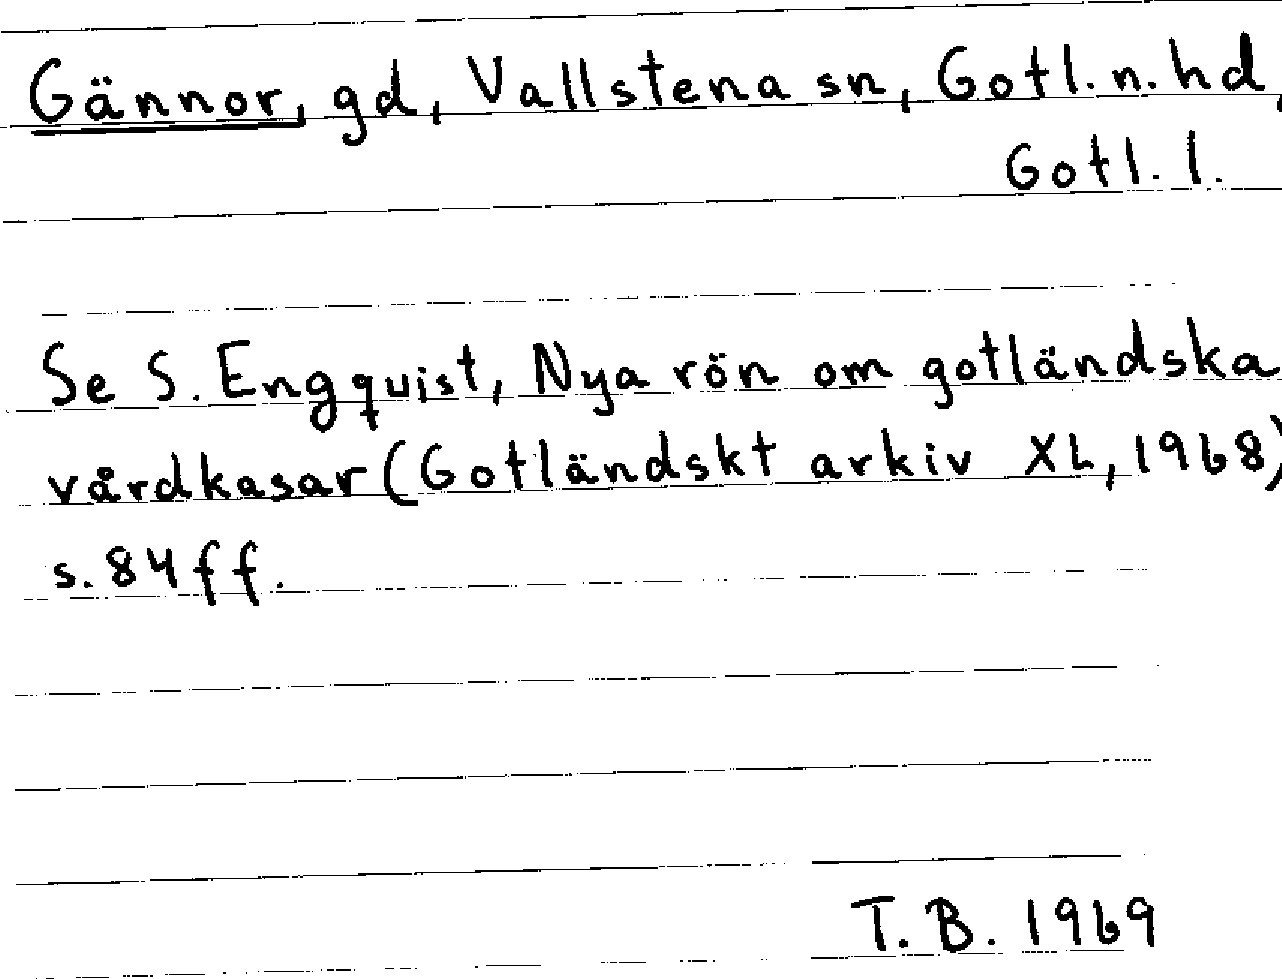 Gännor, gd, Vallstena sn, Gotl. n. hd,
Gotl. l.
Se S. Engquist, Nya rön om gotländska
vårdkasar (Gotländskt arkiv XL, 1968)
s. 84 ff.
T. B. 1969